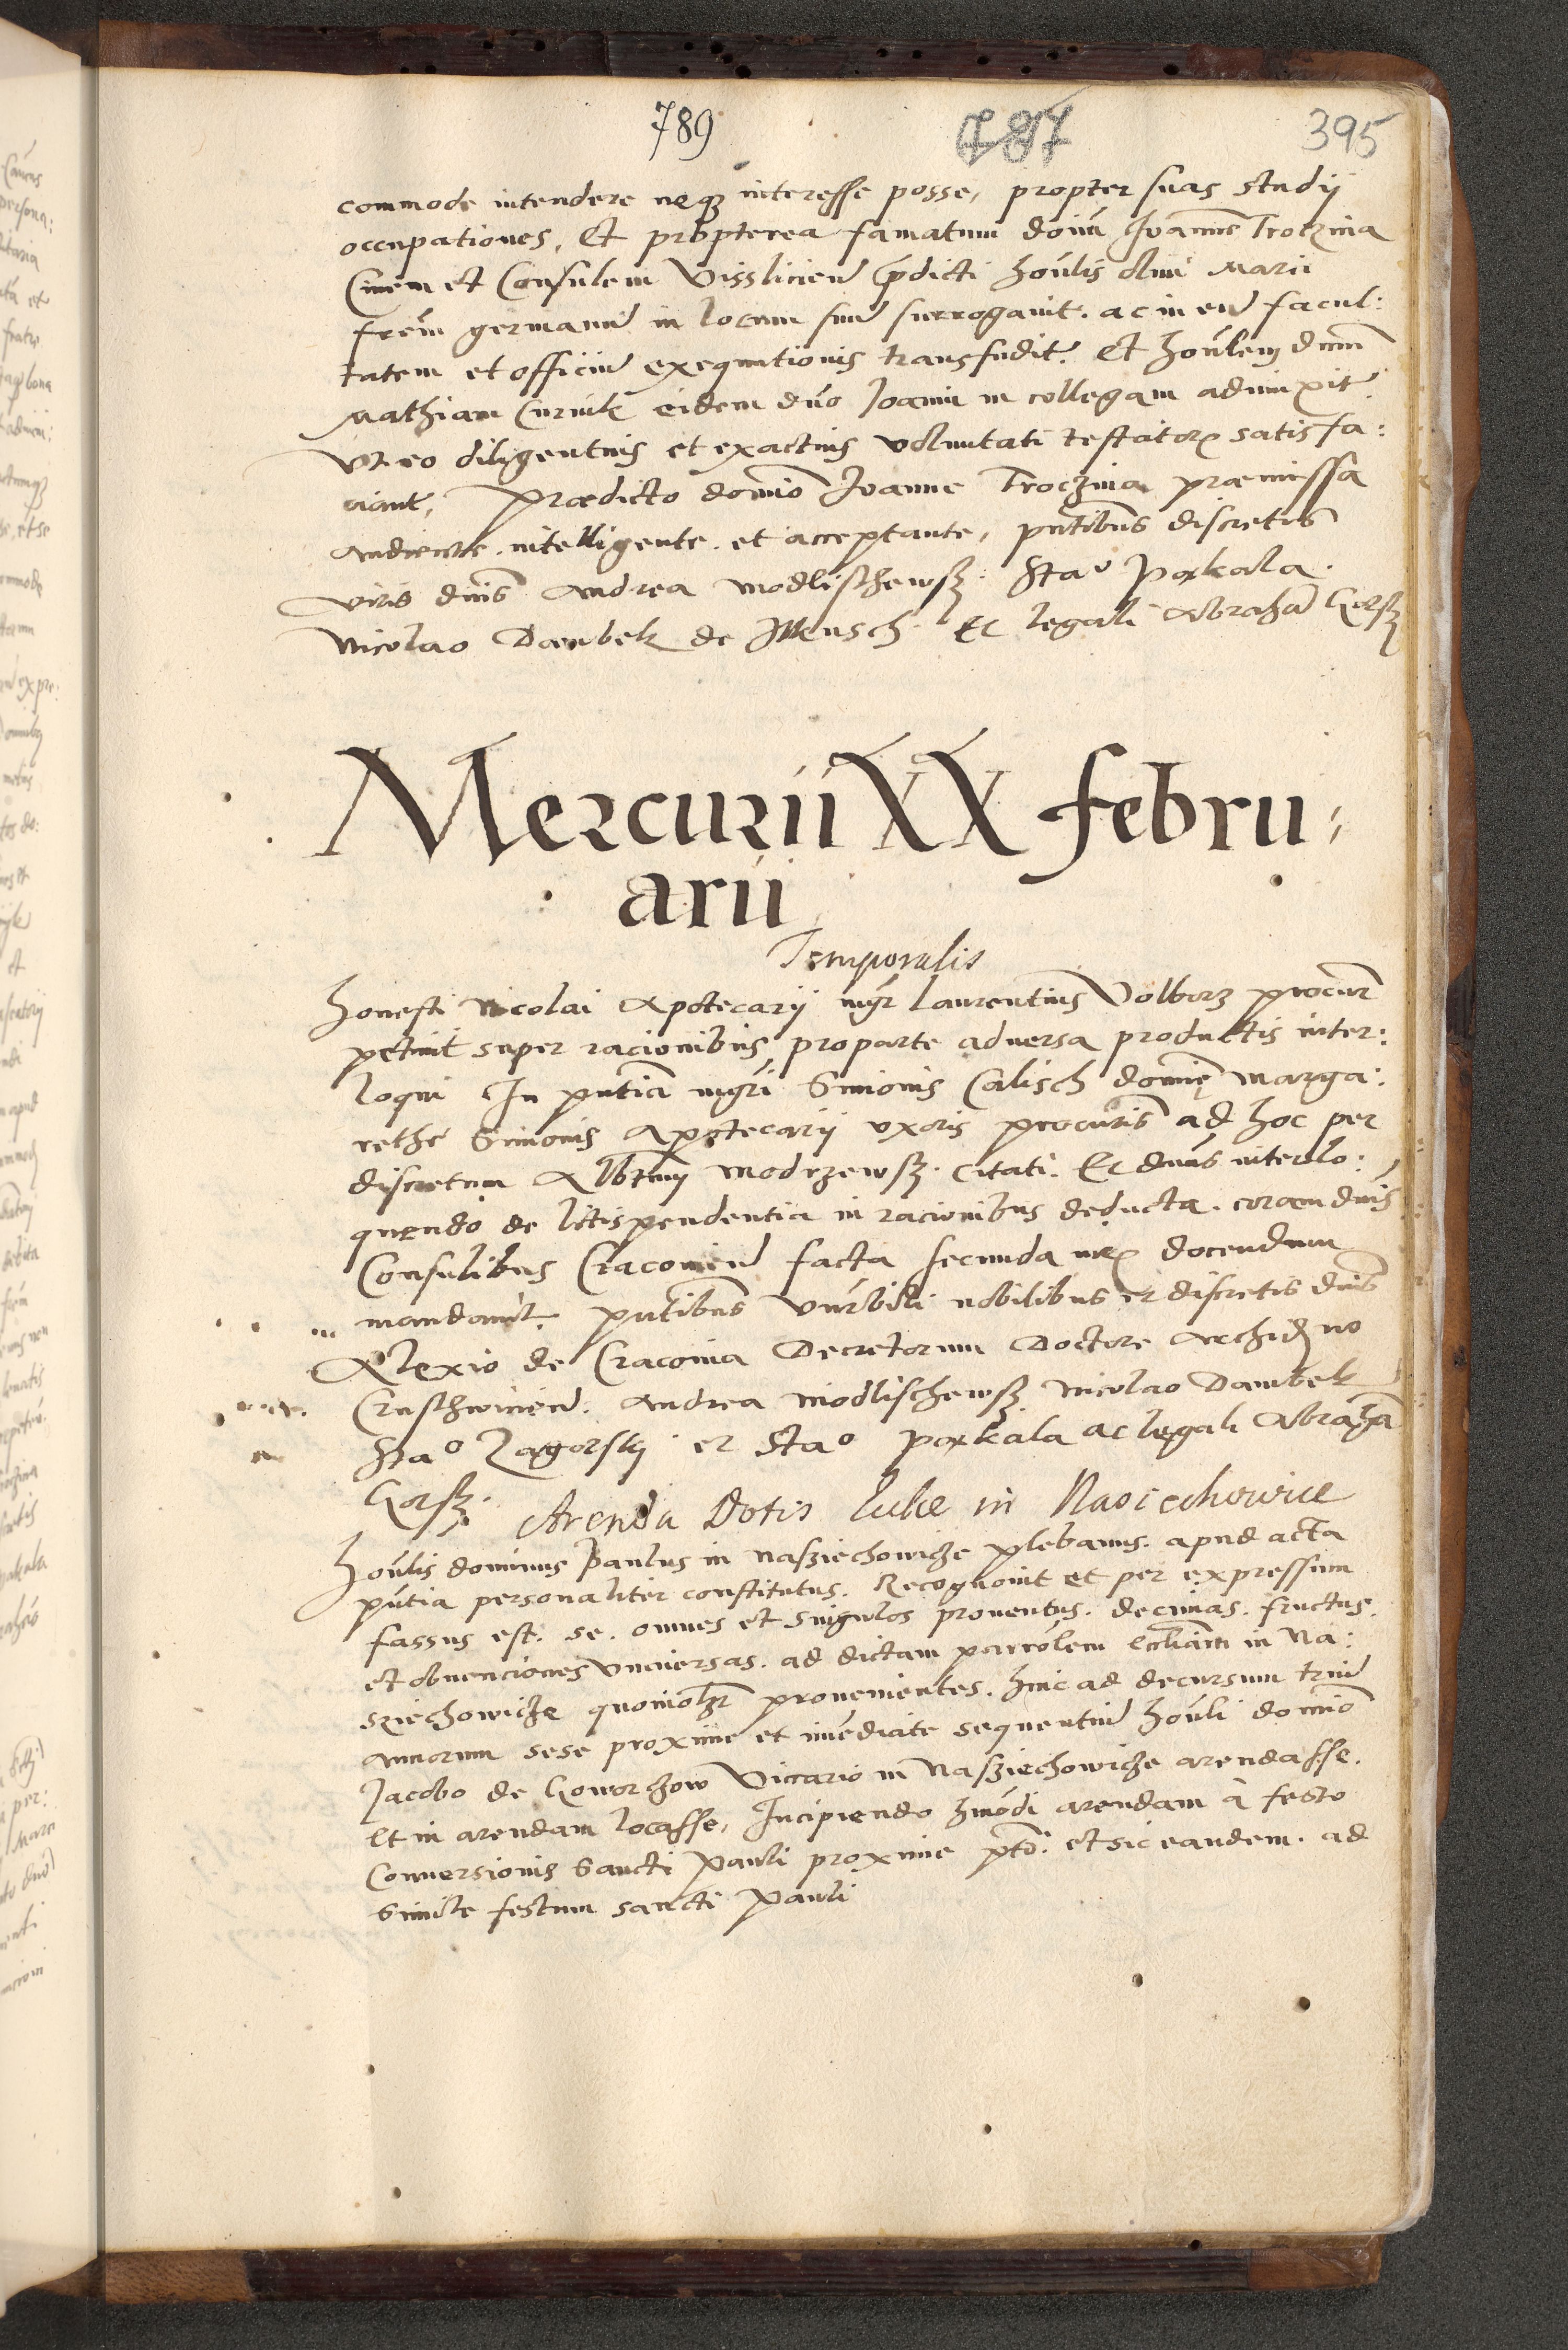 789 787 395
commode intendere neqꝫ interesse posse, propter suas studij
occupationes, Et propterea famatum doinu Ioannē Troczina
Civem et Consulem Visslicien̄ p̄dicti hōnlis olim Marci
frēm germanū in locum suū surrogavit. ac in eū facul:
tatem et officiū exequutionis transfudit. Et hōnlem dnm̄
Mathiam Curink eidem dn̄o Ioanni in collegam adiunxit
Vt eo diligentius et exactius voluntati testatoris satisfa:
ciant, Praedicto domin̄o Ioanne Troczina praemissa
audiente. intelligente. et acceptante, pn̄tibus discretis
viris dnis̄ Andrea Modlischewsꝫ. Staº Paxkala.
Nicolao Dambek de Mensch. Et legali Abrahā Gorsꝫ
Mercurii XX febru:
arii
Temporalis
Honesti Nicolai Apotecarij mgr̄ Laurentius Volborz procur̄
petivit super racionibus pro parte adversa productis inter:
loqui In pn̄tia mgrī Simonis Calisch domine Marga:
rethe Simonis Apotecarij uxoris procuris̄ ad hoc per
discretum Albtum̄ Modrzewsꝫ. citati. Et dnūs interlo:
quendo de litispendentia in racionibus deducta. coram dnīs
Consulibus Cracovien̄ facta secunda Iuris docendum
mandavit. pn̄tibus Vnrbili nobilibus et discretis dnīs
Alexio de Cracovia Decretorum Doctore Archidno
Cruschwicien̄. Andrea Modlischewsꝫ. Nicolao Dambek
Staº Zagorskij et Staº Paxkala ac legali Abrahā
Gorsꝫ.
Arenda Dotis Eccle in Nasiechowice
Hōnlis dominus Paulus in Nasziechowicze plebanus. apud acta
pn̄tia personaliter constitutus. Recognovit et per expressum
fassus est. se. omnes et singulos proventus. decimas. fructus.
et obventiones universas. ad dictam parrōlem ecclīam in Na:
sziechowicze quomolꝫ provenientes. hinc ad decursum triū
annorum sese proxime et imēdiate sequentiū hōnli domin̄o
Jacobo de Goworzow Viccario in Nasziechowicze arendasse.
Et in arendam locasse, Incipiendo hmōdi arendam à festo
Conversionis Sancti Pauli proxime pto. et sic eandem. ad
Simile festum sancti Pauli